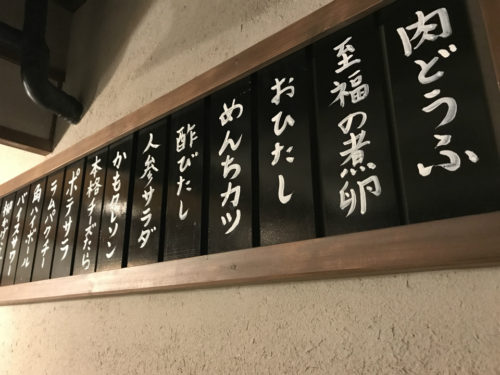 肉どうふ
至福の煮卵
おひたし
めんちカツ
酢びたし
人参サラダ
かもクレソン
本格チーズたら
ポテサラ
ラムパクチー
角ハイボール
バイスサワー